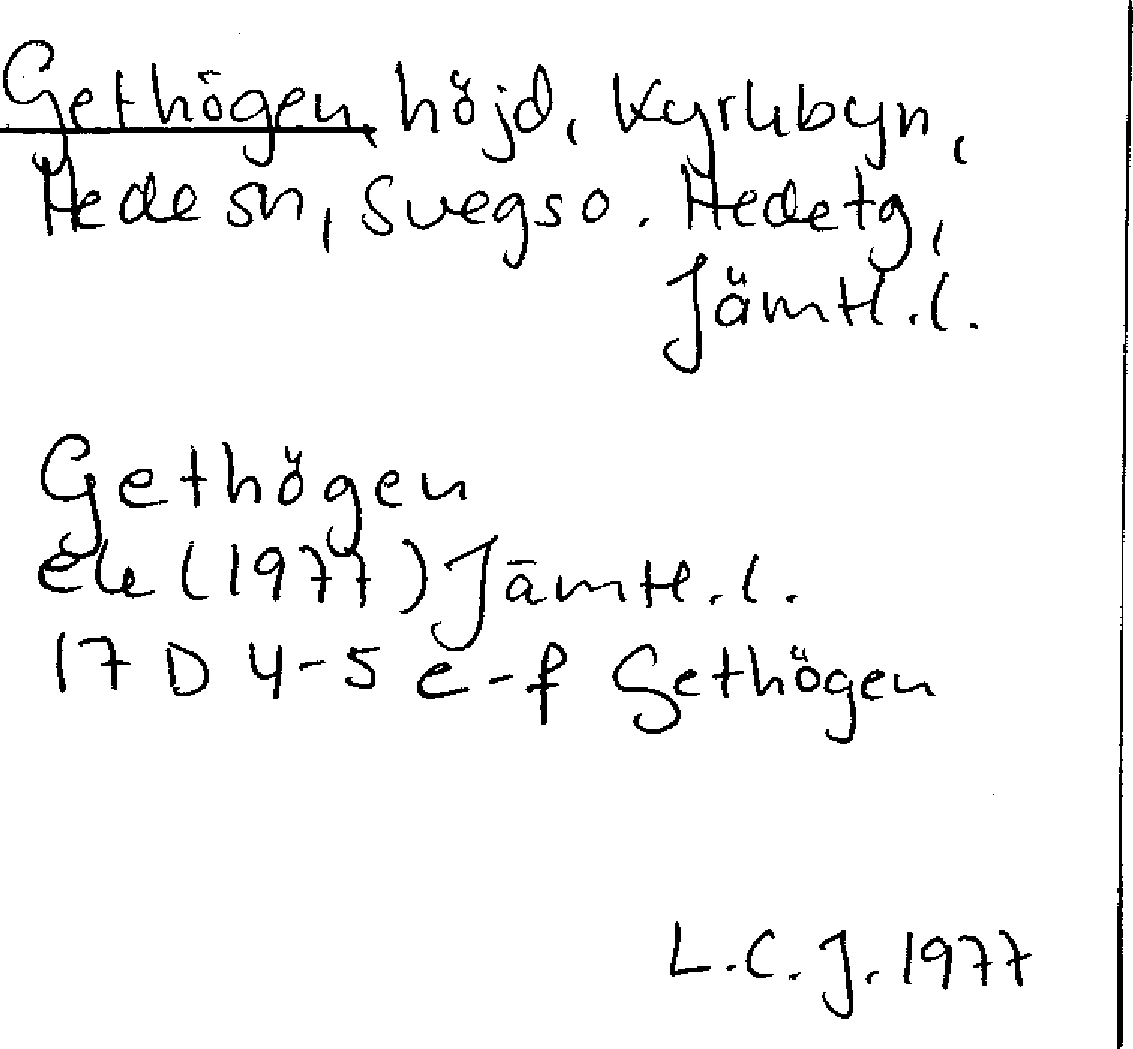 Gethögen, höjd, Kyrkbyn,
Hede sn, Svegs o. Hede tg,
Jämtl. l.
Gethögen
ek (1977) Jämtl. l.
17 D 4-5 e-f Gethögen
L.C.J. 1977